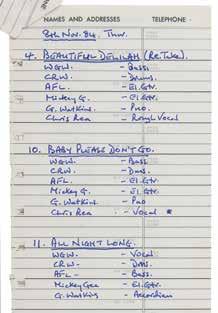 NAMES AND ADDRESSES TELEPHONE
8th Nov. 84. Thur.
4. BEAUTIFUL DELILAH (Re.Take).
WGW. - Bass.
CRW. - Drums.
AFL. - El. Gtr.
Mickey G. - El. Gtr.
G. Watkins. - Pno.
Chris Rea - Rough Vocal
10. BABY PLEASE DON'T GO.
WGW. - Bass.
CRW. - Dms.
AFL. - El. Gtr.
Mickey G. - El. Gtr.
G. Watkins - Pno.
Chris Rea. - Vocal *
11. ALL NIGHT LONG.
WGW. - Vocal
CRW - Dms.
AFL - Bass.
Mickey Gee - El. Gtr.
G. Watkins - Accordian